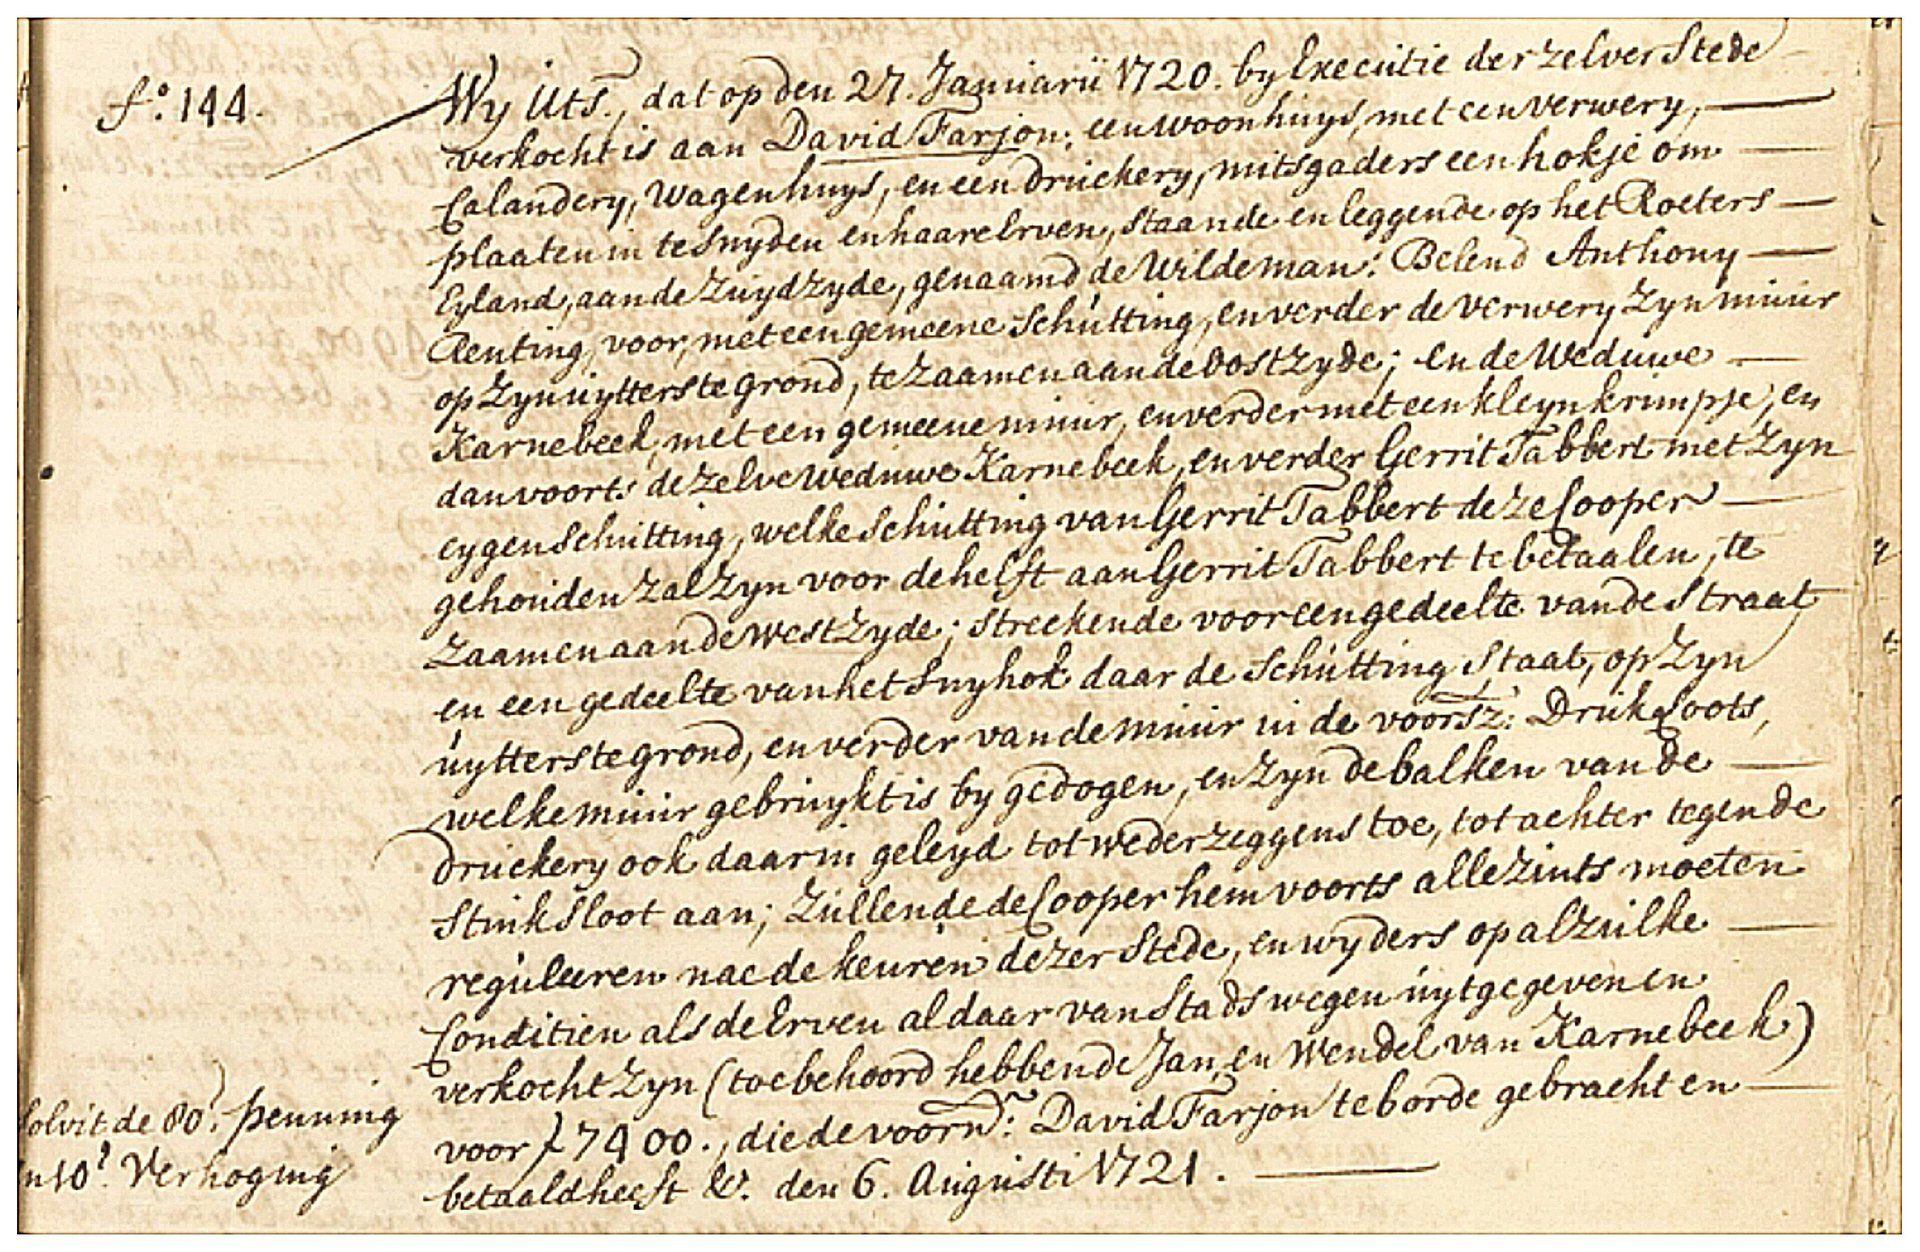 fo: 144.
Wy Uts., dat op den 27. Januarii 1720. by Executie der zelver Stede
verkocht is aan David Farjon: een woonhuys, met een verwery,
Calandery, Wagenhuys, en een Druckery, mitsgaders een hokje om
plaaten in te snyden en haare Erven, staande en leggende op het Roeters
Eyland, aan de Zuydzyde, genaamd de Wildeman: Belend Anthony
Renting, voor, met een gemeene Schutting, en verder de verwery zyn muur
op zyn uytterste grond, te zaamen aan de Oostzyde; en de Weduwe
Karnebeek, met een gemeene muur, en verder met een kleyn krimpje, en
dan voorts de zelve Weduwe Karnebeek, en verder Gerrit Tabbert met zyn
eygen Schutting, welke Schutting van Gerrit Tabbert deze Cooper
gehouden zal zyn voor de helft aan Gerrit Tabbert te betaalen, te
zaamen aan de Westzyde; streckende voor een gedeelte van de Straat
en een gedeelte van het Snyhok daar de Schutting staat, op zyn
uytterste grond, en verder van de muur in de voorsz: Drukloots,
welke muur gebruykt is by gedogen, en zyn de balken van de
Druckery ook daar in geleyd tot wederzeggens toe, tot achter tegen de
Stinksloot aan; Zullende de Cooper hem voorts allezints moeten
reguleeren nae de keuren dezer Stede, en wyders op alzulke
Conditien als de Erven aldaar van Stads wegen uytgegeven en
verkocht zyn (toebehoord hebbende Jan, en Wendel van Karnebeek)
voor ƒ 7400., die de voorn: David Farjon te borde gebracht en
betaald heeft &. den 6. Augusti 1721.
solvit de 80: penning
en 10: Verhoging